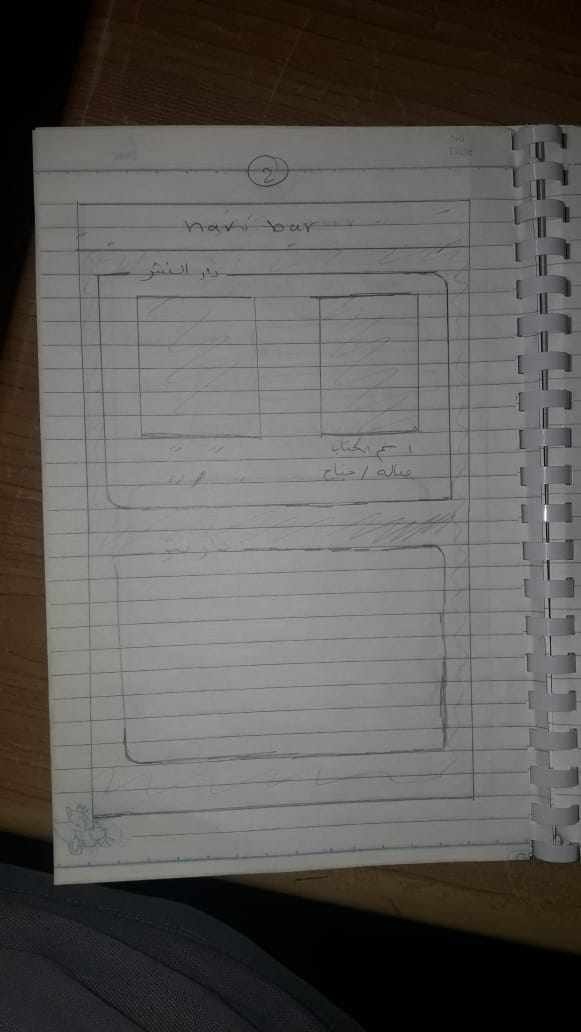 No
Date
2
navi bar
دار النشر
اسم الكتاب
صالة / جناح
" "
" / "
دار نشر